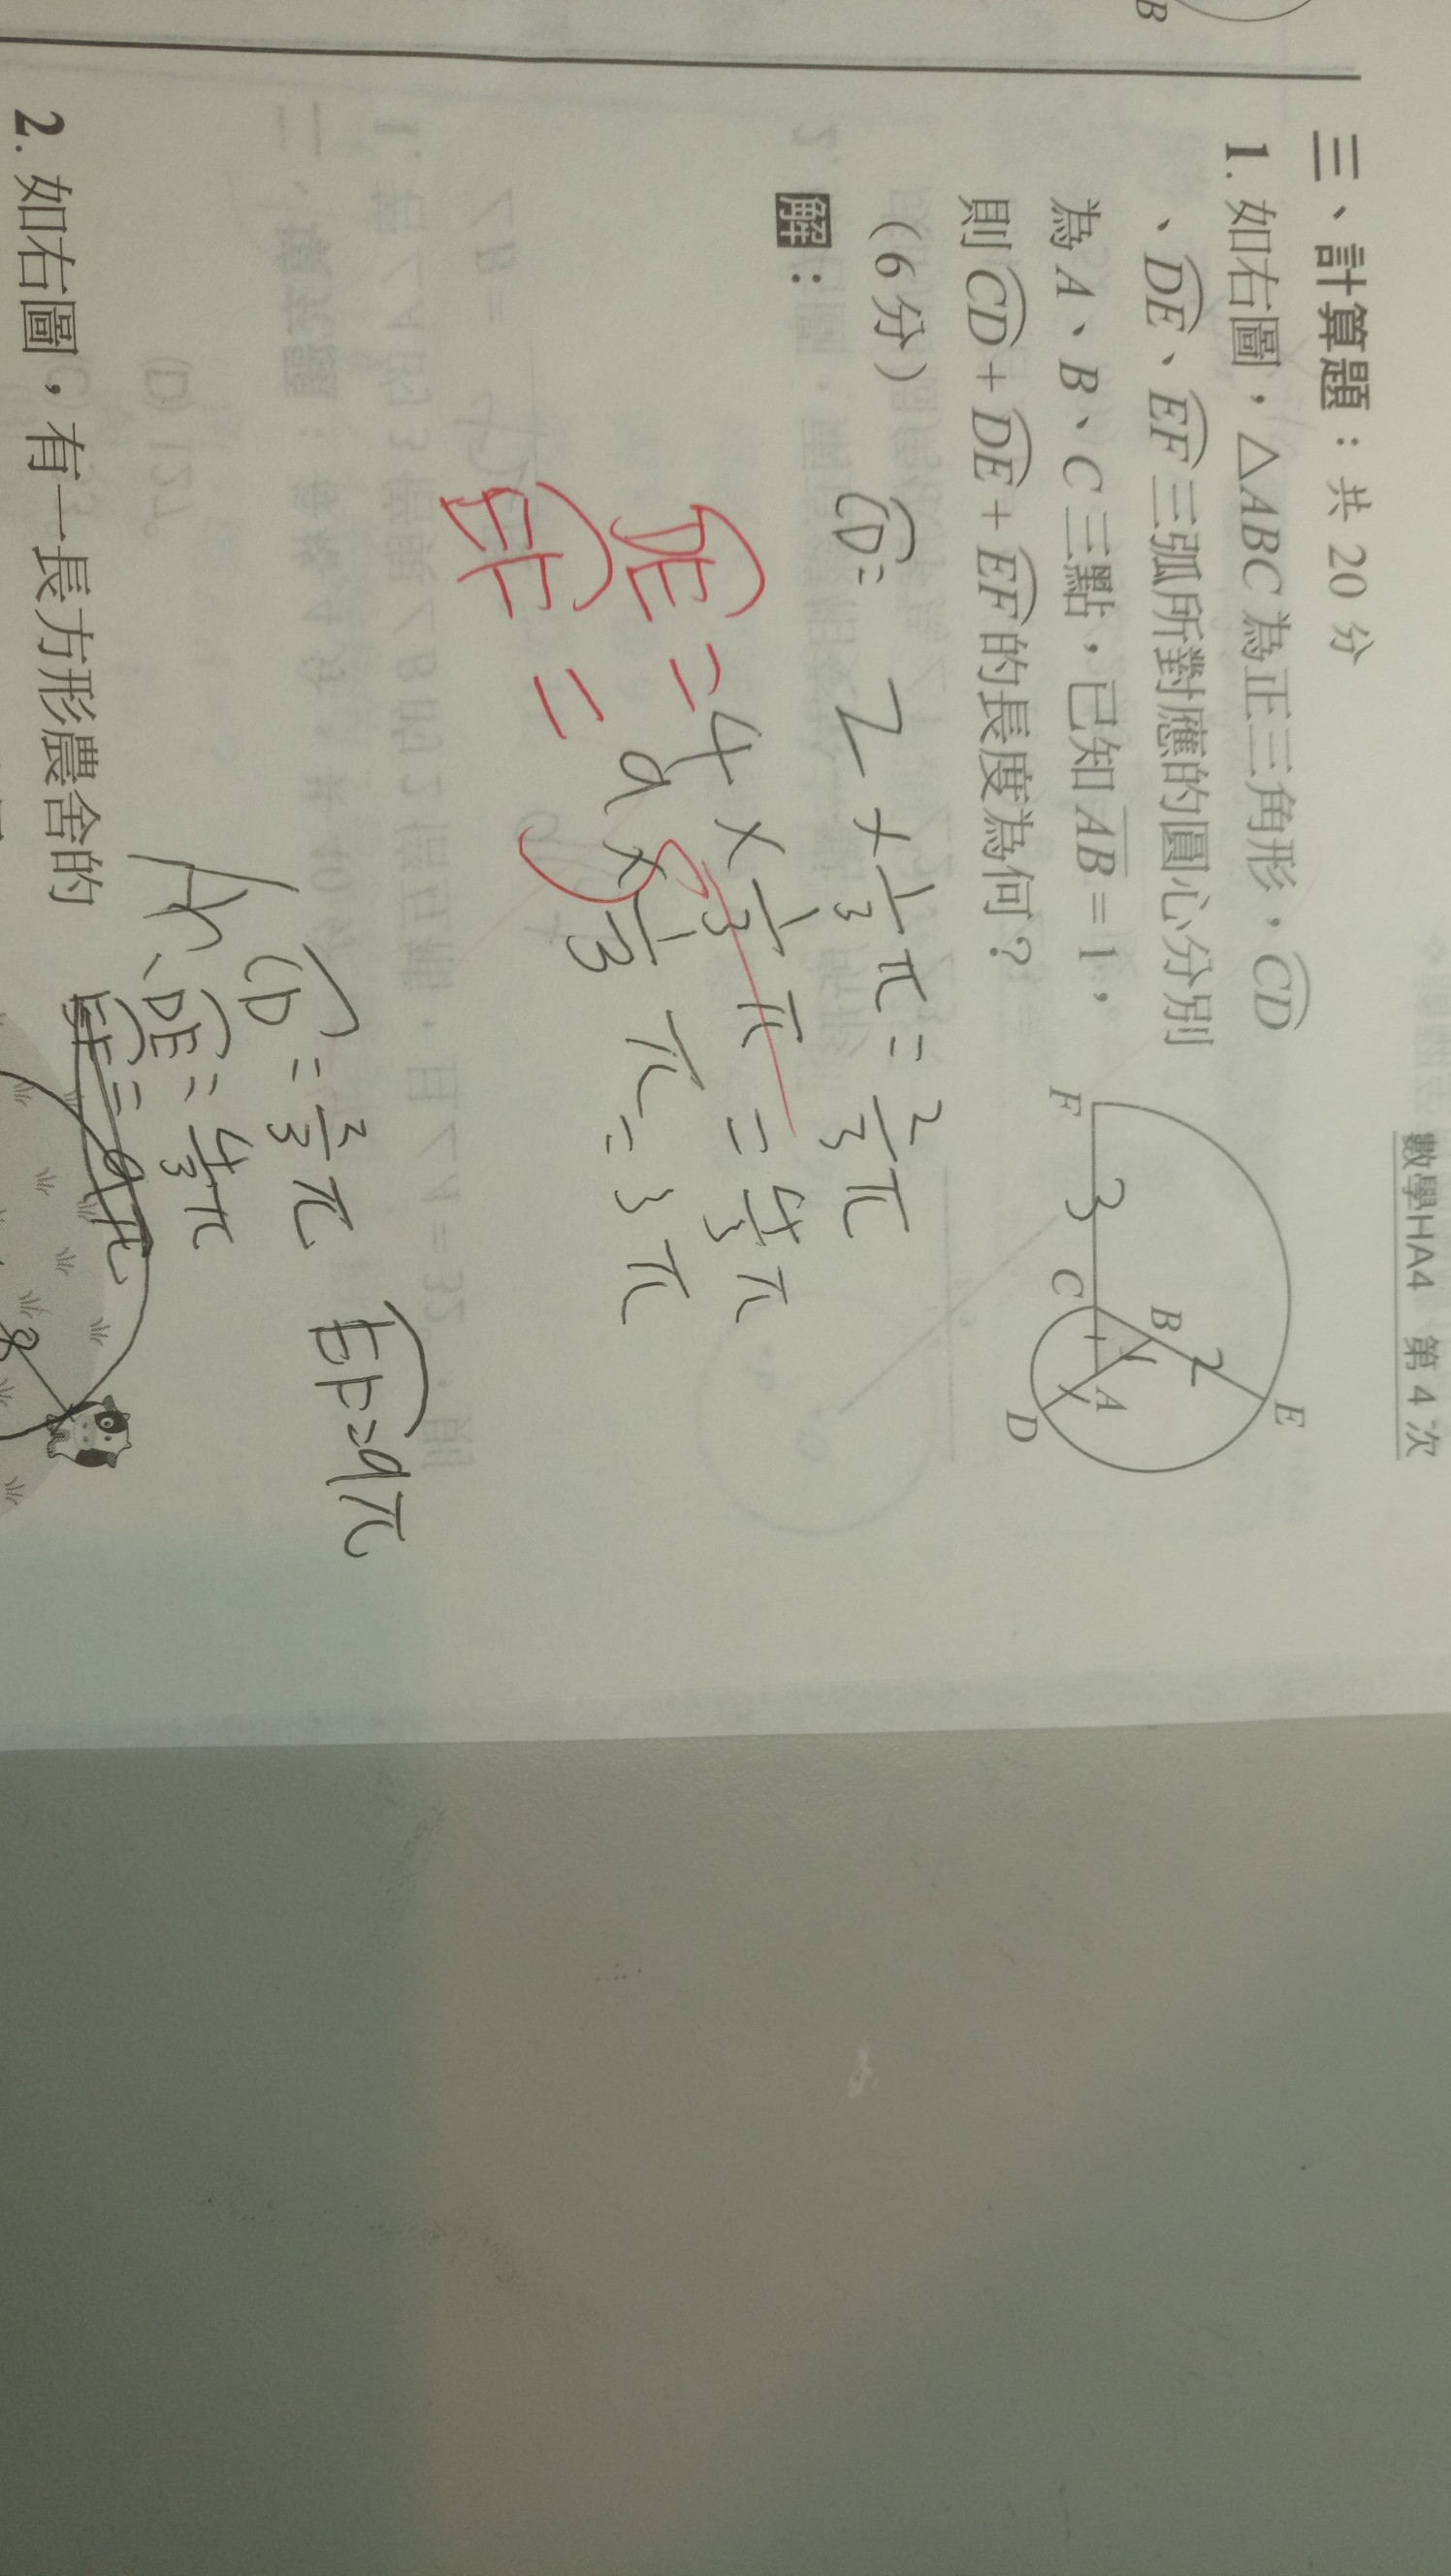 數學HA4 第4次
B
三、計算題：共 20 分
1. 如右圖，△ABC 為正三角形，CD
、DE、EF 三弧所對應的圓心分別
為 A、B、C 三點，已知 AB = 1，
則 CD + DE + EF 的長度為何？
（6 分）
解：
E
B
2
1
A
F
3
C
1
D
CD = 2 × 1/3 π = 2/3 π
DE = 4 × 1/3 π = 4/3 π
EF = 9 × 1/3 π = 3π
A: CD = 2/3 π
、DE = 4/3 π
EF = 9π
EF = 9π
2. 如右圖，有一長方形農舍的
8